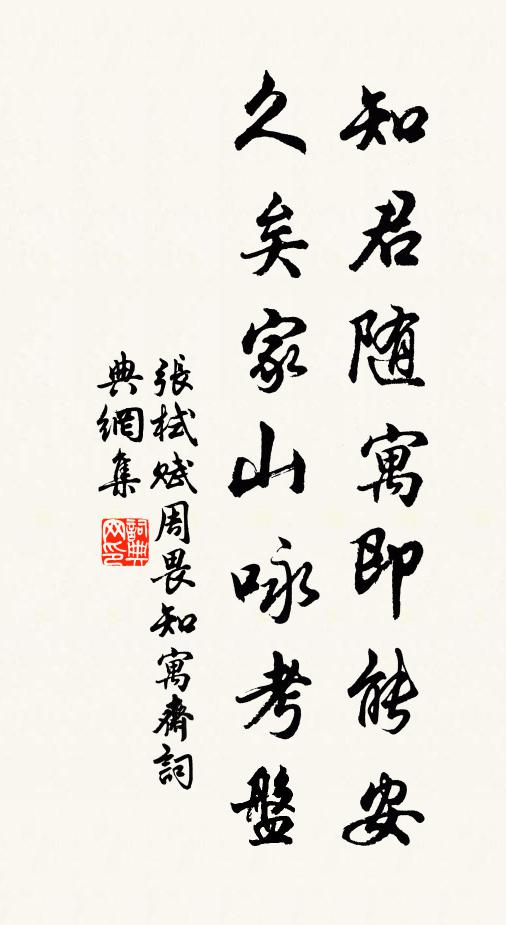 知君随寓即能安
久矣家山咏考盤
張栻賦周畏知寓齋詞
典網集
詞典
网印